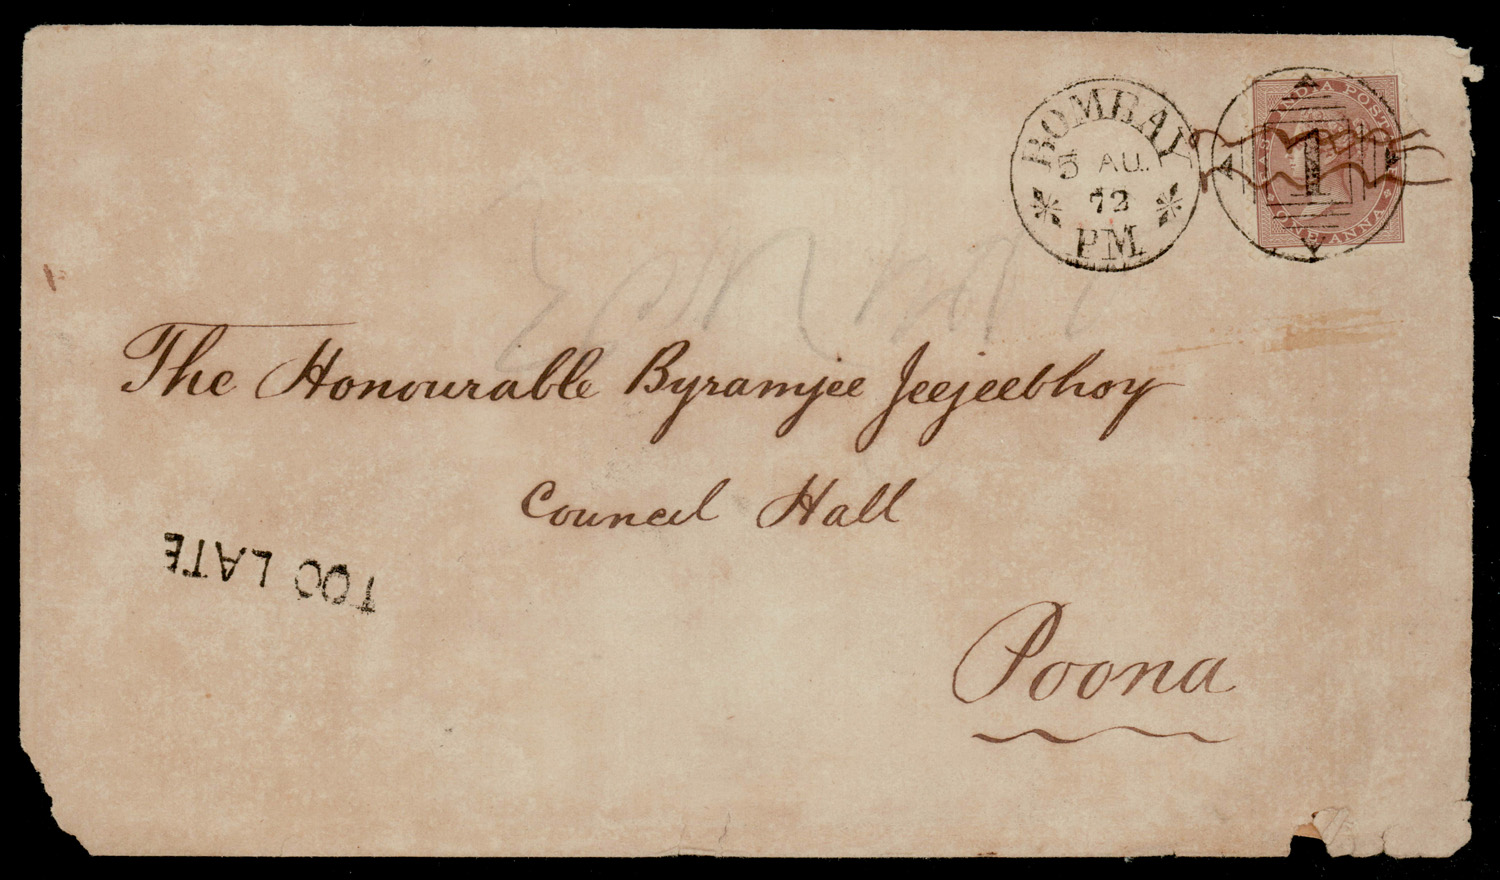 BOMBAY
5 AU.
72
PM
1
INDIA POSTAGE
ONE ANNA
The Honourable Byramjee Jeejeebhoy
Council Hall
TOO LATE
Poona